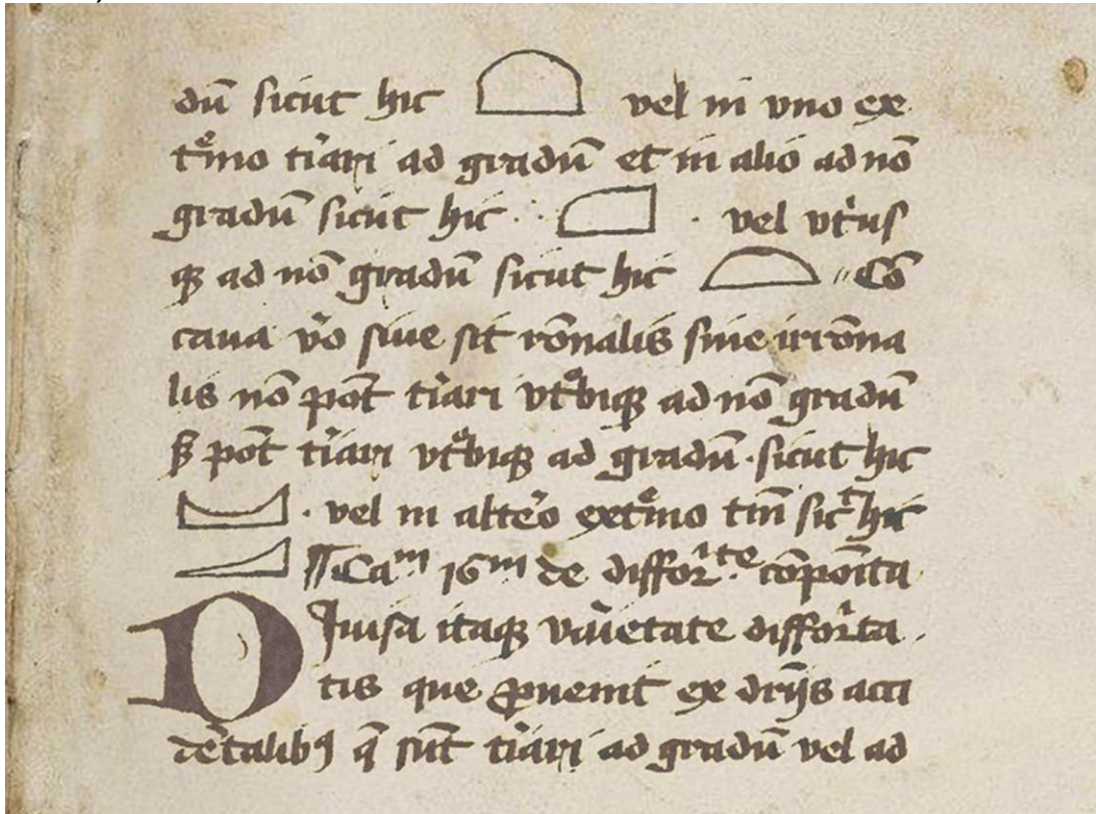 dū sicut hic vel in vno ex
tͦmo t̾iari ad gradū et in alio ad nō
gradū sicut hic · vel vt̾us
qꝫ ad nō gradū sicut hic Cō
caua v̾o siue sit rōnalis siue irrōna
lis nō pōt t̾iari vtͦbiqꝫ ad nō gradū
pōt t̾iari vtͦbiqꝫ ad gradū · sicut hic
· vel in alt̾o extͦmo tm̄ sicᵗ hic
¶ Caᵐ 16ᵐ de cōpōita
Diuisa itaqꝫ difforita
tis que ꝓuenit ex dr̄ijs acci
dētalibꝰ q̄ sūt t̾iari ad gradū vel ad